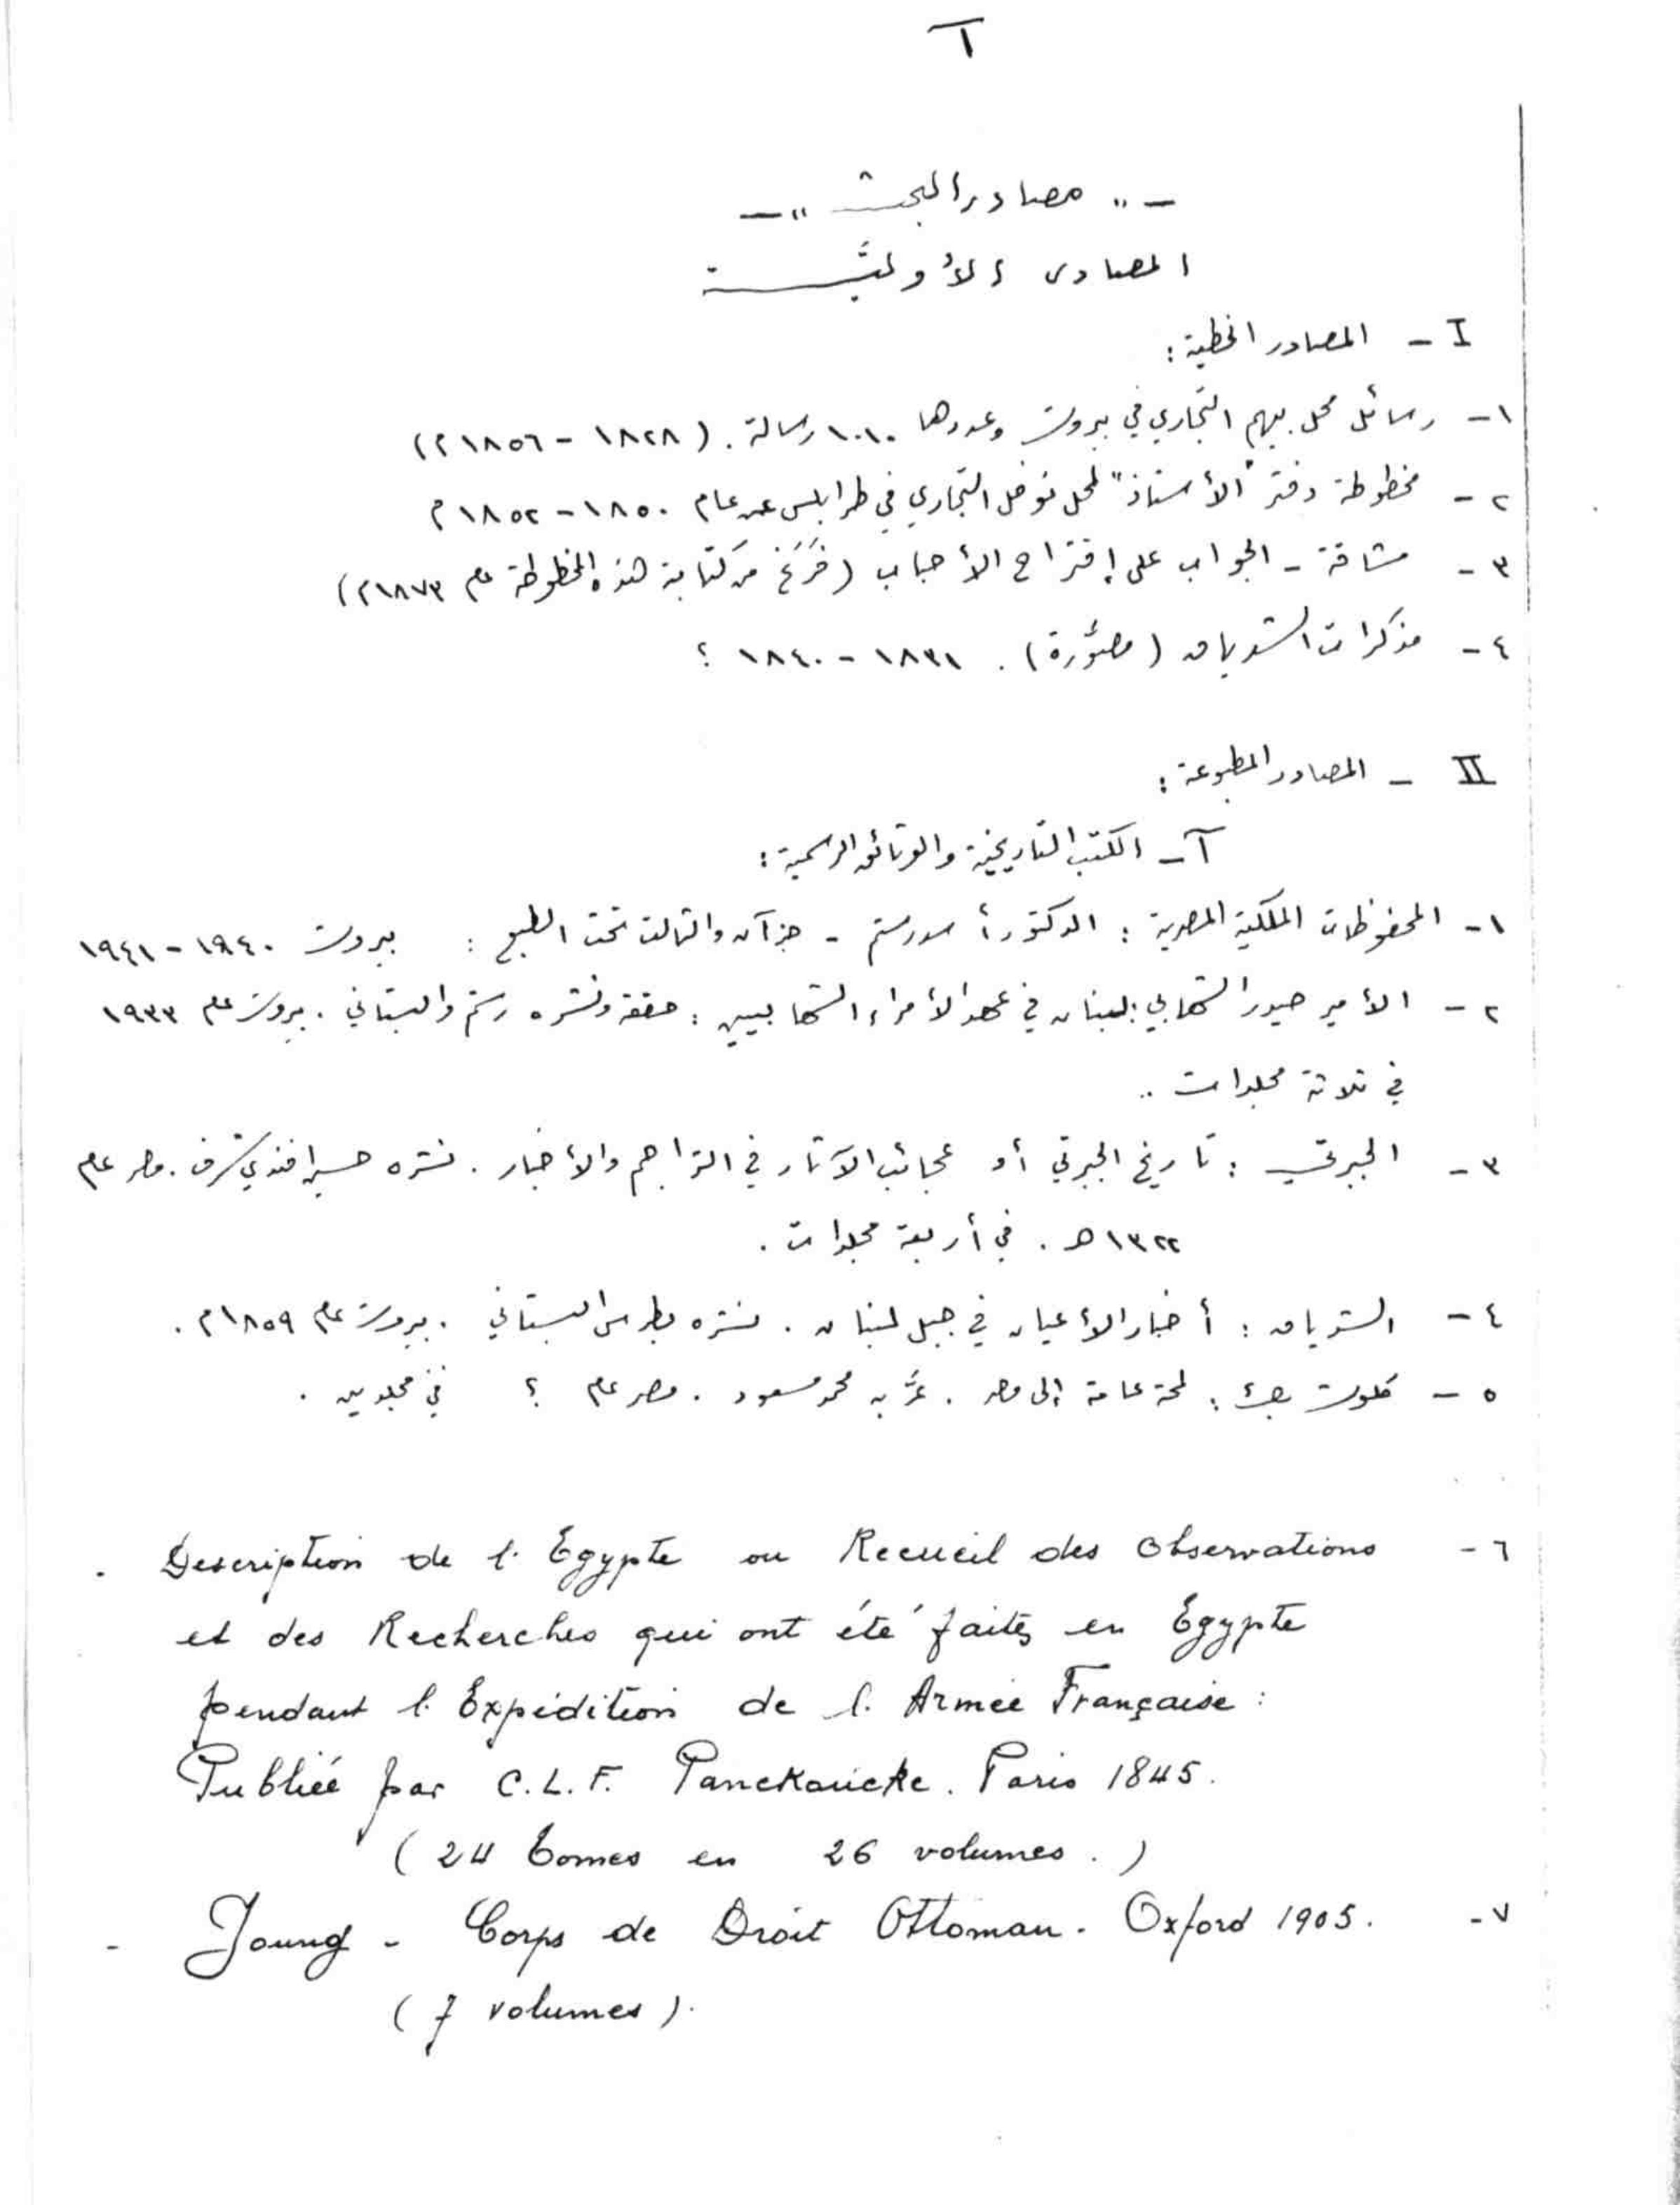 آ
— " مصادر البحث " —
المصادر الأوليَّة
I — المصادر الخطية :
١ - رسائل محل بيهم التجاري في بيروت وعددها ١٠١٠ رسالة . ( ١٨٢٨ - ١٨٥٦ م )
٢ - مخطوطة دفتر "الأستاذ" لمحل نوفل التجاري في طرابلس عن عام ١٨٥٠ - ١٨٥٢ م
٣ - مشاقة - الجواب على إقتراح الأحباب ( فَرَغ من كتابة هذه المخطوطة عام ١٨٧٣ م )
٤ - مذكرات الشدياق ( مصوَّرة ) . ١٨٣١ - ١٨٤٠ ؟
II — المصادر المطبوعة :
آ - الكتب التاريخية والوثائق الرسمية :
١ - المحفوظات الملكية المصرية : الدكتور أسد رستم - جزآن والثالث تحت الطبع : بيروت ١٩٤٠ - ١٩٤١
٢ - الأمير حيدر الشهابي : لبنان في عهد الأمراء الشهابيين : حققه ونشره رستم والبستاني . بيروت عام ١٩٣٣
في ثلاثة مجلدات ..
٣ - الجبرتي : تاريخ الجبرتي أو عجائب الآثار في التراجم والأخبار . نشره حسين افندي شرف . مصر عام
١٣٢٢ هـ . في أربعة مجلدات .
٤ - الشدياق : أخبار الأعيان في جبل لبنان . نشره بطرس البستاني . بيروت عام ١٨٥٩ م .
٥ - كلوت بك : لمحة عامة إلى مصر . عرَّبه محمد مسعود . مصر عام ؟ في مجلدين .
٦ - Description de l'Egypte ou Recueil des Observations
et des Recherches qui ont été faites en Egypte
pendant l'Expédition de l'Armée Française :
Publiée par C.L.F. Panckoucke. Paris 1845.
( 24 tomes en 26 volumes . )
٧ - Joung - Corps de Droit Ottoman. Oxford 1905.
( 7 volumes ).